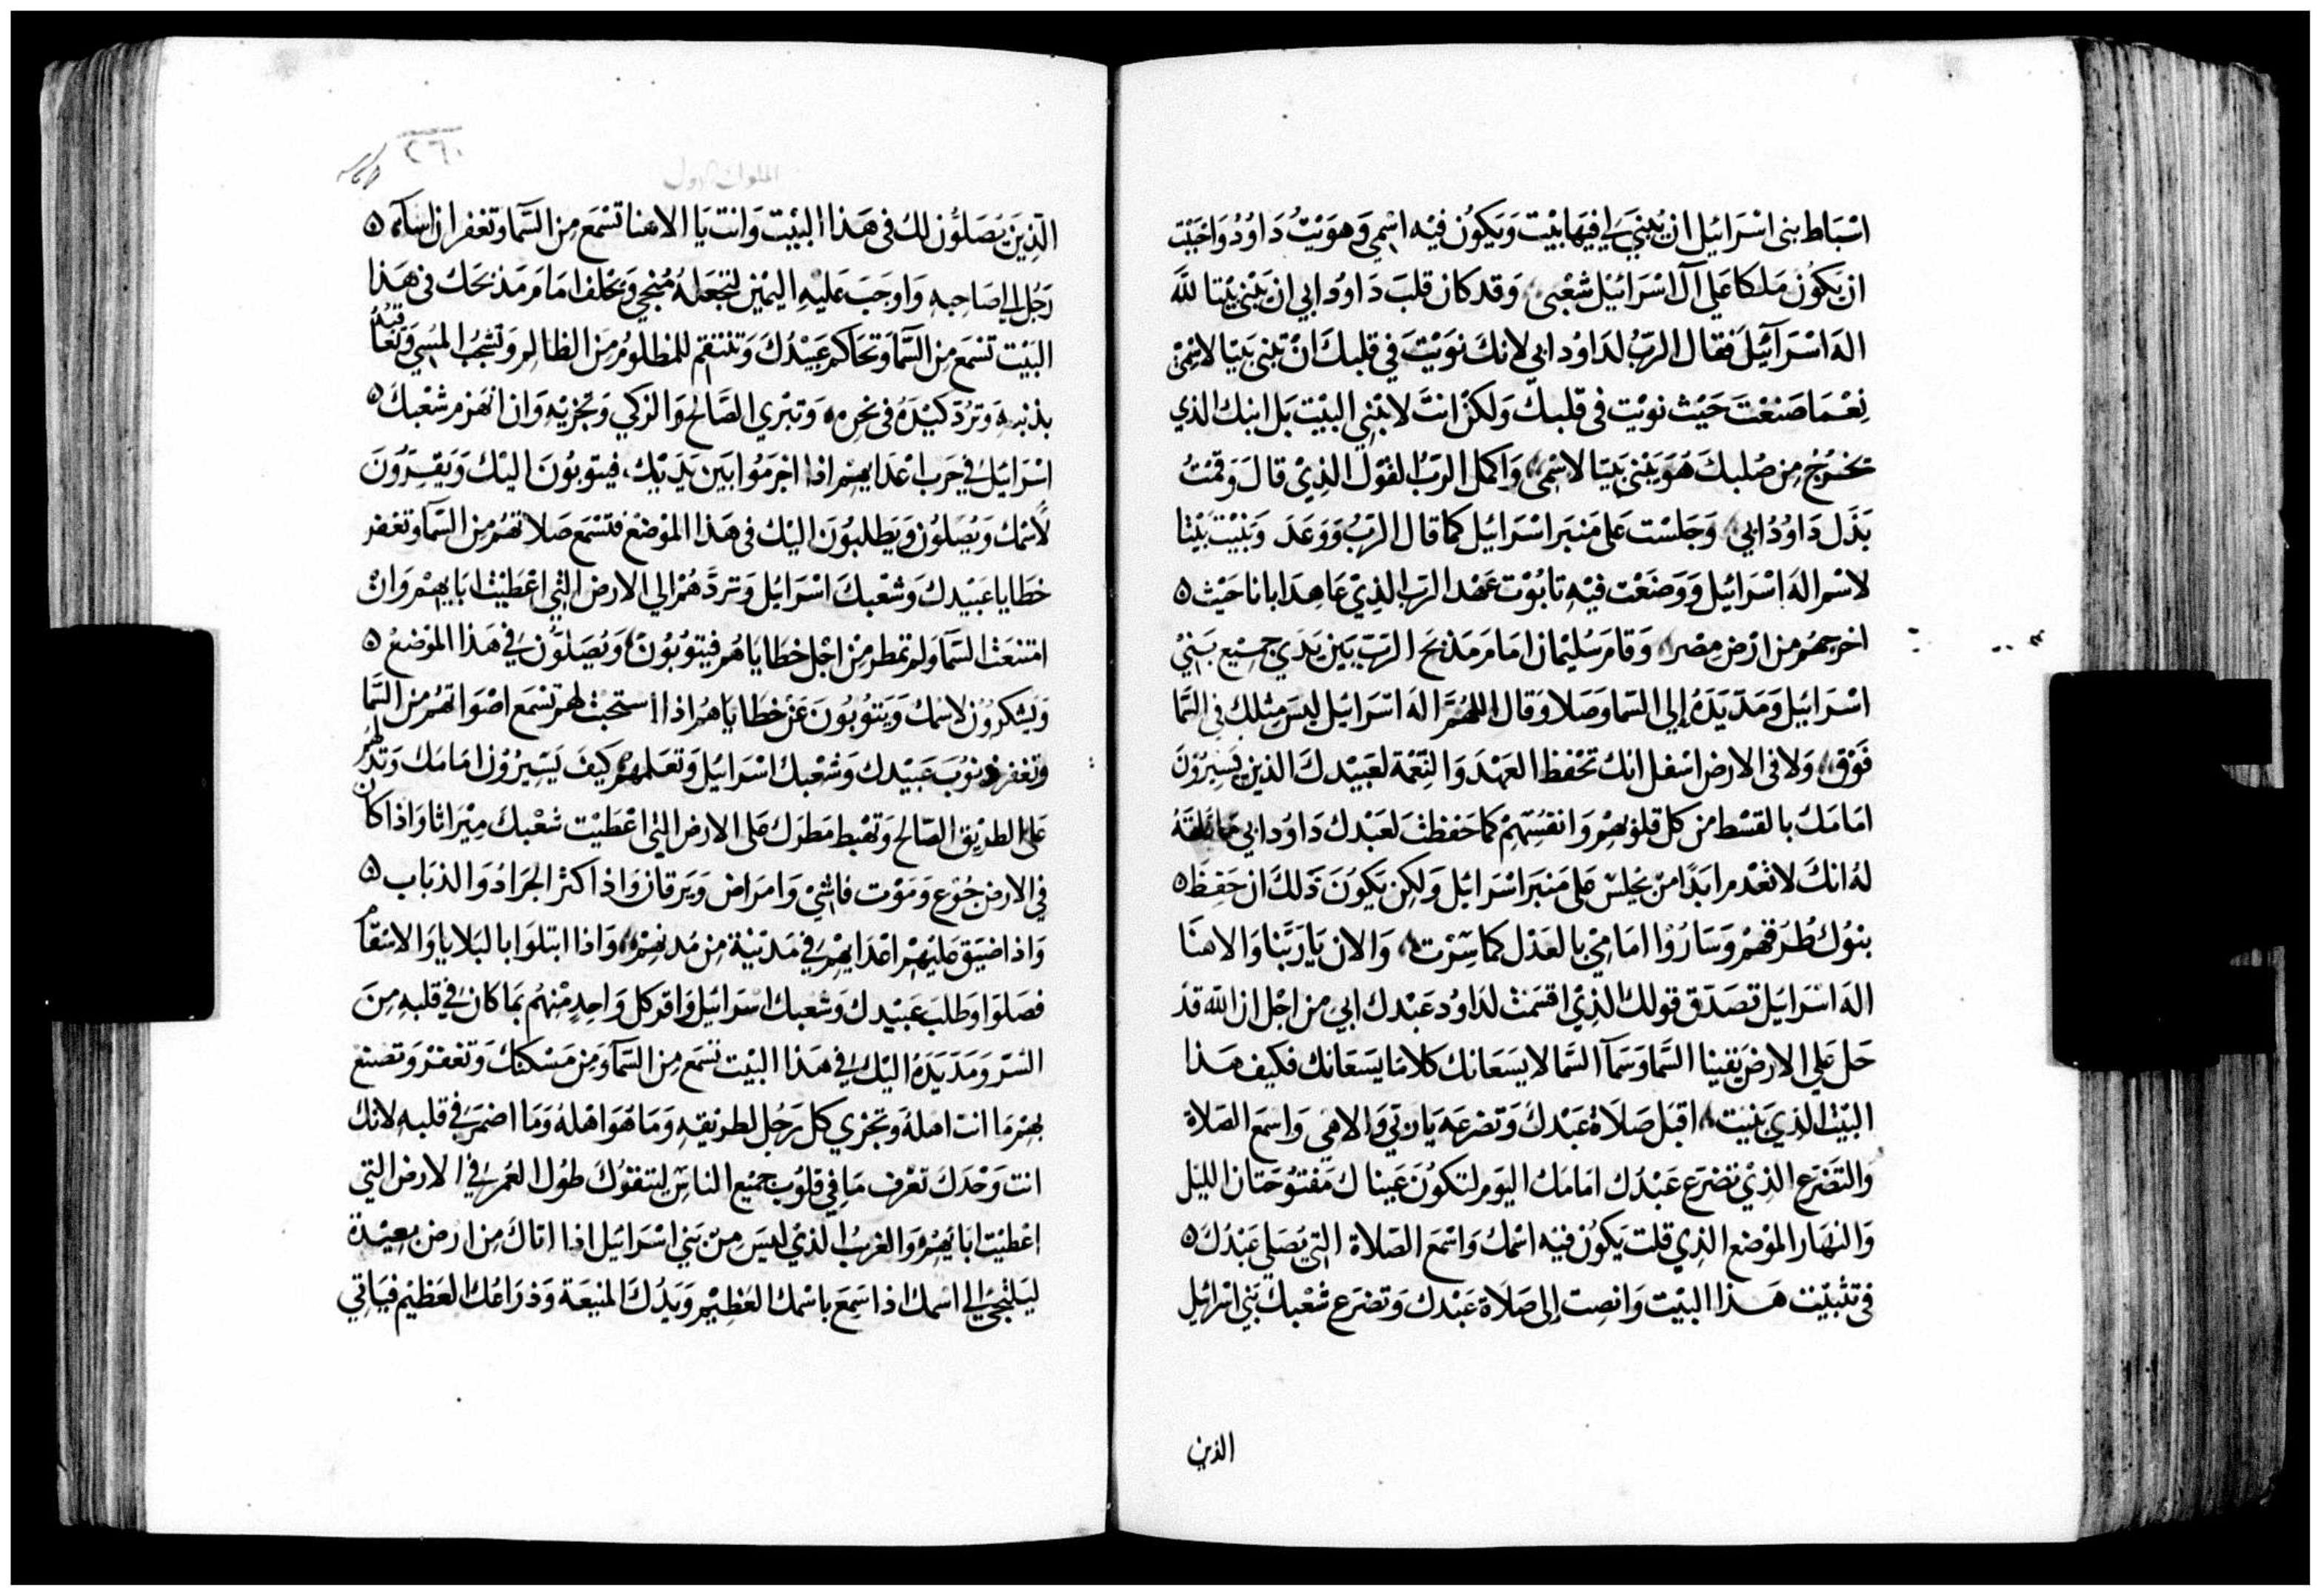 اسباط بنى اسرائيل ان يُبنَي لي فيها بيت ويكون فيه اسمي وهويت داوُد واحببت
ان يكون ملكا علي آل اسرائيل شعبى، وقد كان قلب داوُد ابي ان يبنى بيتا لله
اله اسرآئيل فقال الربُ لداوُد ابي لانك نويت في قلبك ان تبنى بيتا لاسمى
نعما صنعت حيث نويت فى قلبك ولكن انت لا تبني البيت بل ابنك الذي
يخرُج من صُلبك هو يبنى بيتا لاسمى، واكمل الربُ القول الذي قال وقمتُ
بذل داوُد ابي، وجلست على منبر اسرائيل كما قال الربُ ووعد وبنيت بيتا
لاسم اله اسرائيل ووضعت فيه تابوت عهد الرب الذي عاهد ابانا حيث ٥
اخرجهم من ارض مصر، وقام سليمان امام مذبح الربّ بين يدي جميع بني
اسرائيل ومدّ يده إلي السما وصلا وقال اللهُمّ اله اسرائيل ليس مثلك فى السّما
فوق، ولا فى الارض اسفل انك تحفظ العهد والنعمة لعبيدك الذين يسيرون
امامك بالقسط من كل قلوبهم وانفسهم كما حفظت لعبدك داوُد ابي
له انك لا تعدم ابدًا من يجلس على منبر اسرائيل ولكن يكون ذلك ان حفظ ٥
بنوك طُرقهم وساروا امامي بالعدل كما سرت، والان يا ربّنا والاهنا
اله اسرايل تصدّق قولك الذي اقسمت لداوُد عبدك ابي من اجل ان الله قد
حل علي الارض يقينا السّما وسمآ السّما لا يسعانك كلاما يسعانك فكيف هذا
البيت الذي بنيت، اقبل صلاة عبدك وتضرعه يا ربّي والاهي واسمع الصلاة
والتضرع الذي تضرع عبدُك امامك اليوم لتكون عيناك مفتوحتان الليل
والنهار الموضع الذي قلت يكون فيه اسمك واسمع الصلاة التي يصلى عبدُك ٥
فى تثبيت هذا البيت وانصت إلى صلاة عبدك وتضرع شعبك بني اسرائيل
الذين
٢٦٠
الملوك الاول
الذين يُصلّون لك فى هذا البيت وانت يا الاهنا تسمع من السّما وتغفر ان اسآء ٥
رجُل الي صاحبه واوجب عليه اليمين لتجعله مُنجي ويحلف امام مذبحك فى هذا
البيت تسمع من السّما وتحاكم عبيدُك وتنتقم للمظلوم من الظالم وتشجب المسي وتعاقبه
بذنبه وتردّ كيده فى نحره، وتبري الصّالح والزكي وتجزيه وان انهزم شعبك ٥
اسرائيل في حرب اعدايهم اذا اجرمُوا بين يديك، فيتوبون اليك ويقرّون
لاسمك ويُصلون ويطلبون اليك فى هذا الموضع فتسمع صلاتهم من السّما وتغفر
خطايا عبيدك وشعبك اسرائيل وتردّهُم الي الارض التي اعطيت ابايهم وان
امتنعت السّما ولم تمطر من اجل خطاياهُم فيتوبون ويُصلون في هذا الموضع ٥
ويشكرون لاسمك ويتوبون عن خطاياهُم اذا استجبت لهم تسمع اصواتهُم من السّما
وتغفر ذنوب عبيدك وشعبك اسرائيل وتعلمهُم كيف يسيرون امامك وتدلهُم
على الطريق الصّالح وتهبط مطرك على الارض التي اعطيت شعبك ميراثا واذا كان
في الارض جُوع وموت فاشي وامراض ويرقان واذا كثر الجراد والذباب ٥
واذا ضيّق عليهم اعدايهم في مدينة من مدنهم، واذا ابتلوا بالبلايا والاسقام
فصلوا وطلب عبيدك وشعبك اسرائيل واقر كل واحد منهُم بما كان في قلبه من
السّر ومدّ يده اليك في هذا البيت تسمع من السّما ومن مسكنك وتغفر وتصنع
بهم ما انت اهله وتجزي كل رجُل لطريقه وما هو اهله وما اضمر في قلبه لانك
انت وحدك تعرف ما في قلوب جميع الناس ليتقوك طول العُمر في الارض التي
اعطيت ابايهم، والغرب الذي ليس من بني اسرائيل اذا اتاك من ارض بعيدة
ليلتجئ الي اسمك اذا سمع باسمك العظيم ويدُك المنيعة وذراعك العظيم فياتي